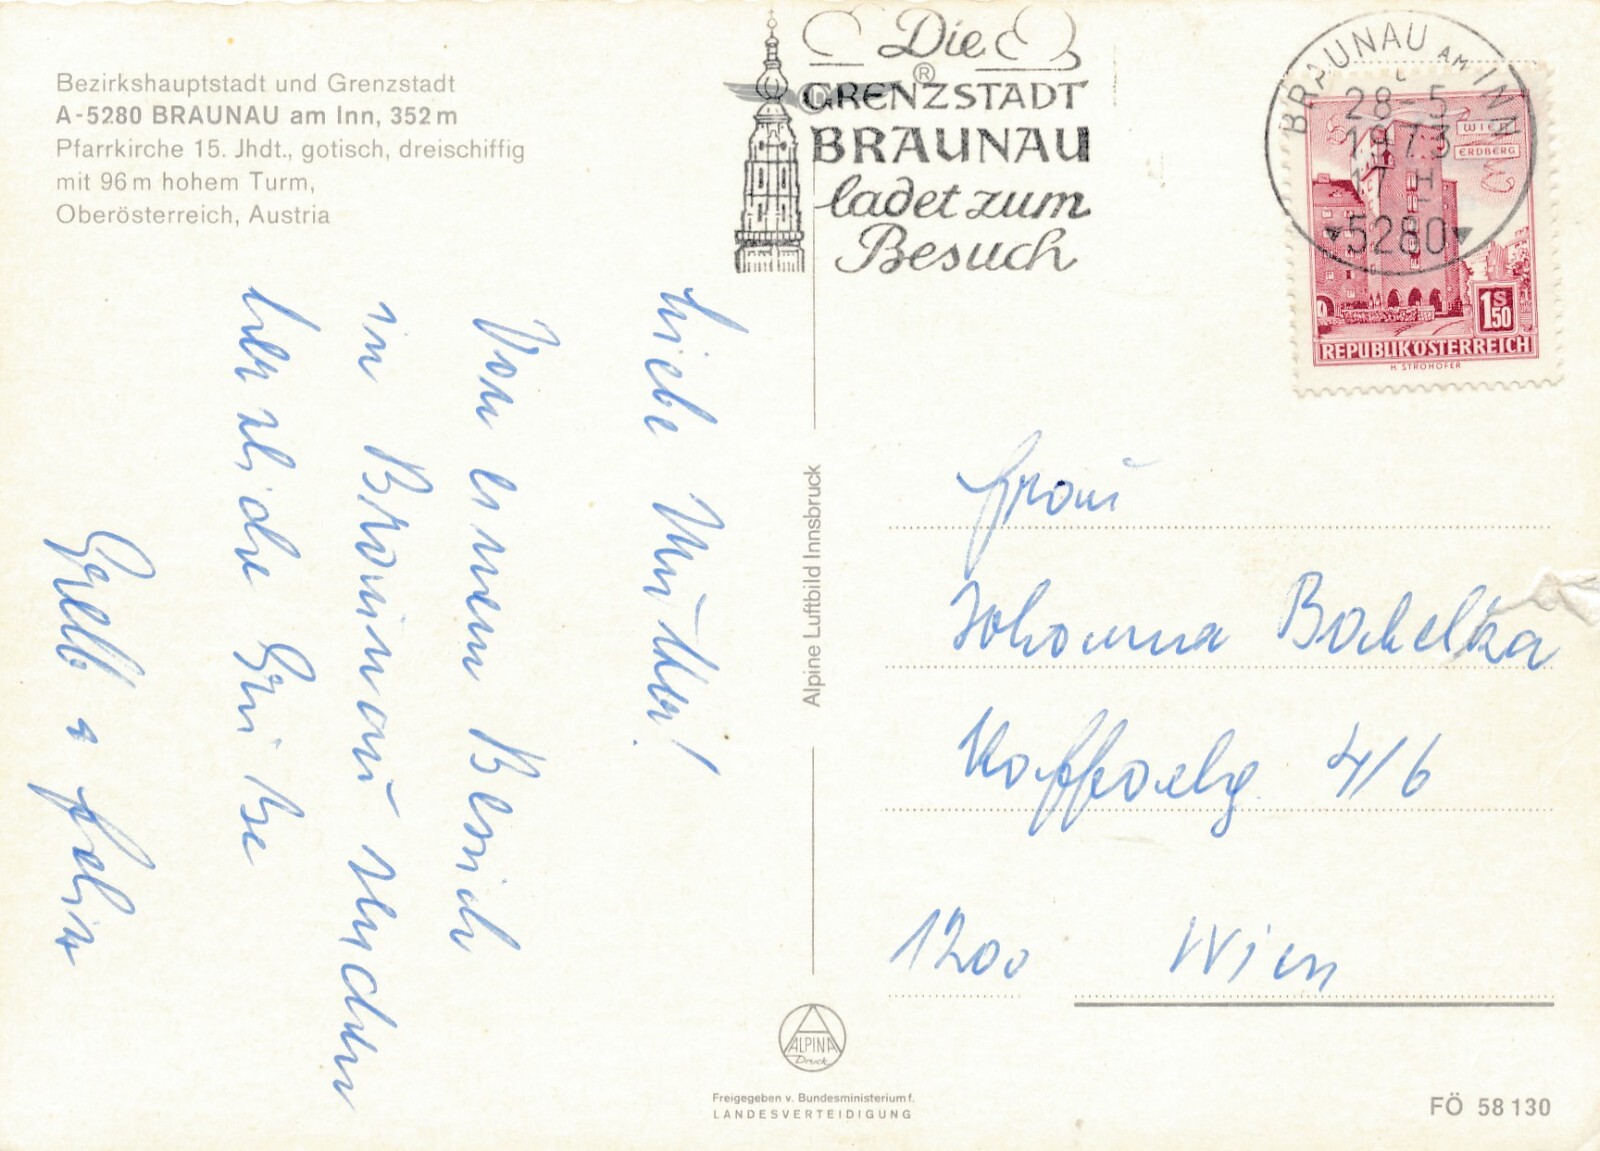 Bezirkshauptstadt und Grenzstadt
A-5280 BRAUNAU am Inn, 352 m
Pfarrkirche 15. Jhdt., gotisch, dreischiffig
mit 96 m hohem Turm,
Oberösterreich, Austria
Die
GRENZSTADT
BRAUNAU
ladet zum
Besuch
BRAUNAU AM INN
28-5
1973
17 H
5280
WIEN
ERDBERG
1 S 50
REPUBLIK ÖSTERREICH
H. STROHOFER
Liebe Mutter!
Von einem Besuch
in Braunau senden
herzliche Grüße
Alpine Luftbild Innsbruck
Frau
Johanna
4/6
1200 Wien
ALPINA
Druck
Freigegeben v. Bundesministerium f.
LANDESVERTEIDIGUNG
FÖ 58 130